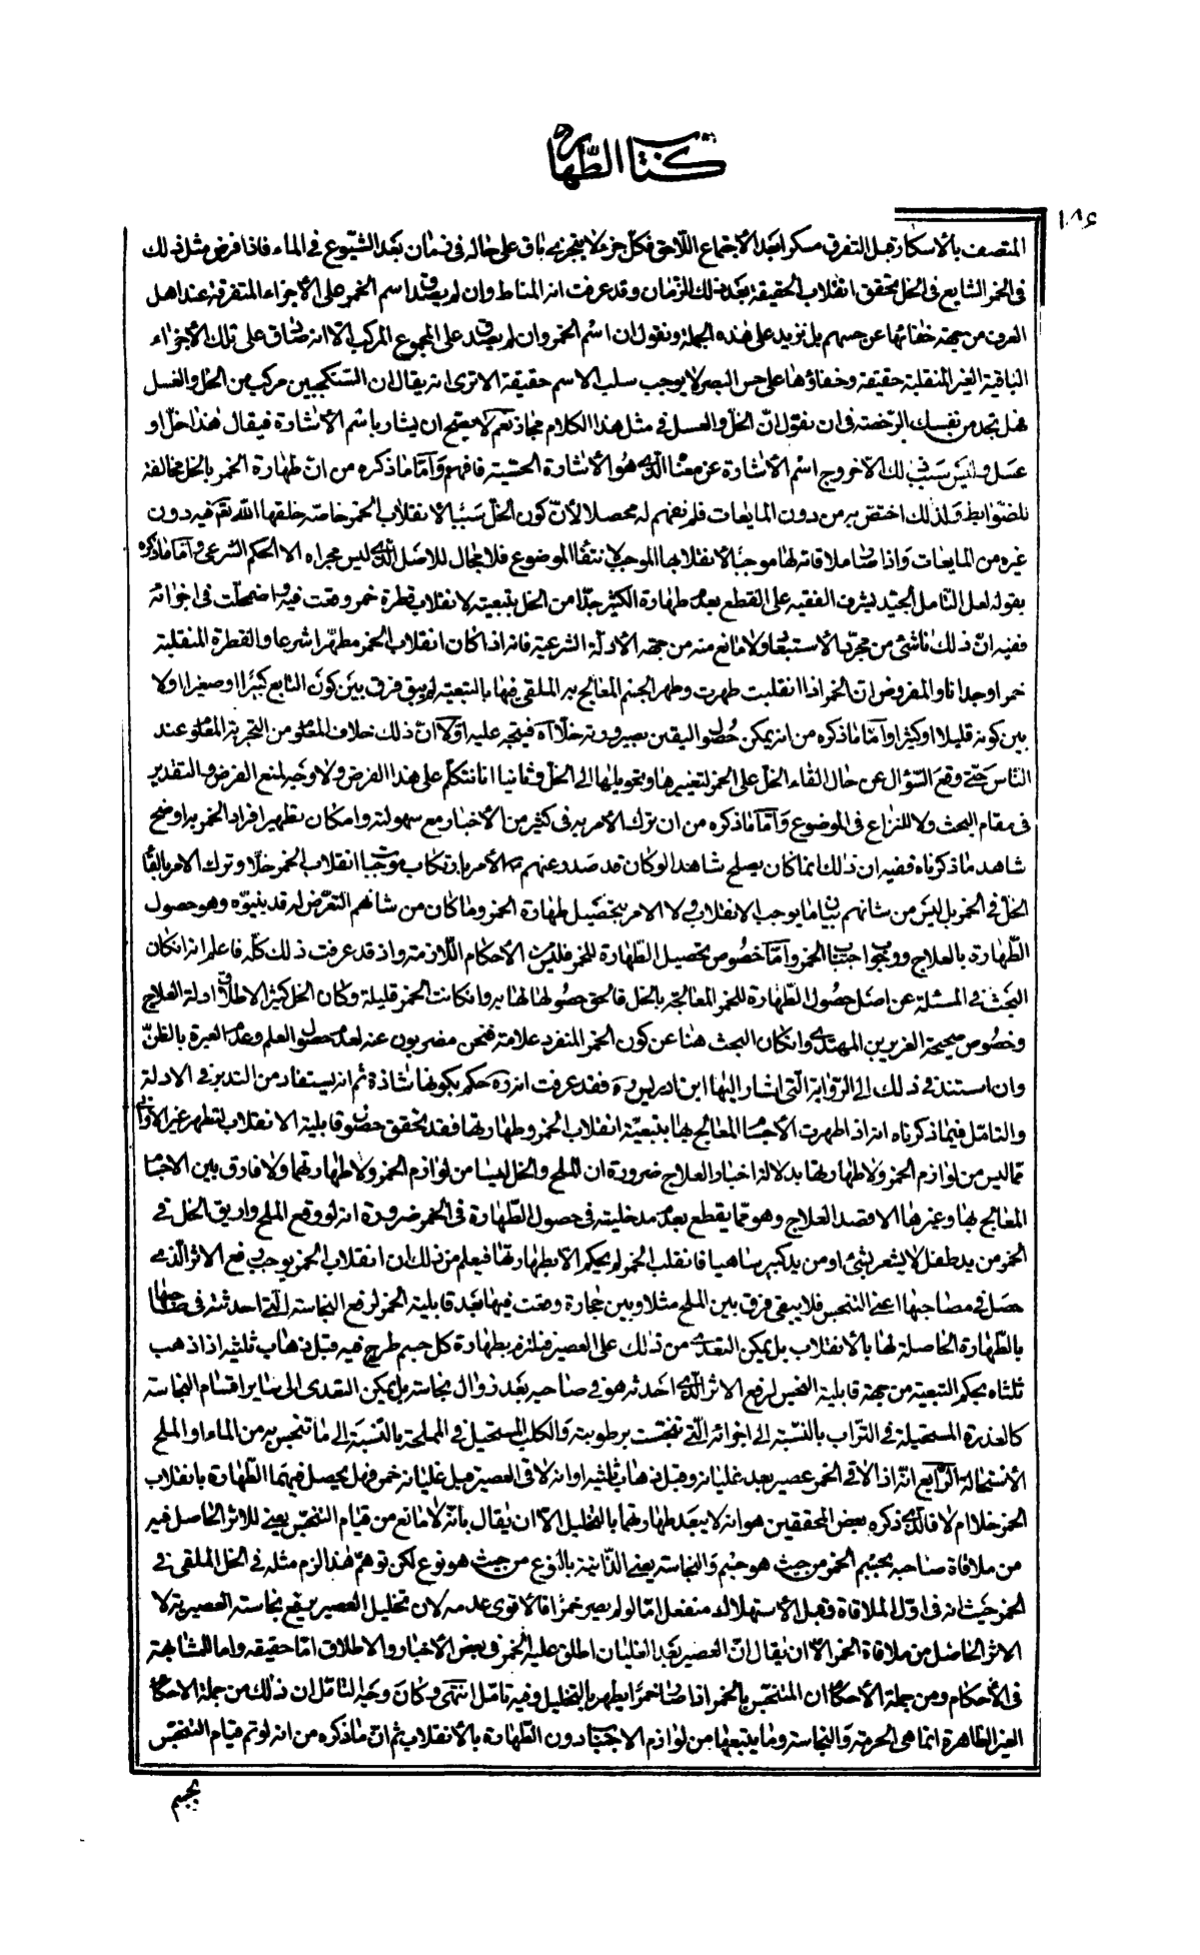 كتاب الطهارة
١٨٤
المتصف بالأسكار قبل التفرق مسكرا بعد الأجتماع اللاحق فكل جزء لا يتجزى باق على حاله في زمان بعد الشيوع في الماء فاذا فرض مثل ذلك
في الخمر الشايع في الخل تحقق انقلاب الحقيقة بعد ذلك الزمان وقد عرفت انه المناط وان لم يصدق اسم الخمر على الأجزاء المتفرقة عند اهل
العرف من جهة خفائها عن حسهم بل نزيد على هذه الجملة ونقول ان اسم الخمر وان لم يصدق على المجموع المركب الا انه صادق على تلك الأجزاء
الباقية الغير المنقلبة حقيقة وخفاؤها على حس البصر لا يوجب سلب الاسم حقيقة الا ترى انه يقال ان السكنجبين مركب من الخل والعسل
فهل تجد من نفسك الرخصة في ان نقول ان الخل والعسل في مثل هذا الكلام مجاز نعم لا يصح ان يشار باسم الأشارة فيقال هذا خل او
عسل وليس سبب ذلك الا خروج اسم الأشارة عن معناه الذي هو الأشارة الحسية فافهم وامّا ما ذكره من ان طهارة الخمر بالخل مخالفة
للضوابط ولذلك اختص به من دون المايعات فلم نفهم له محصلا لأن كون الخل سببا لانقلاب الخمر خاصة خلقها الله تعالى فيه دون
غيره من المايعات واذا صار ملاقاته لها موجبا لانقلابها الموجب لانتفاء الموضوع فلا مجال للاصل الذي ليس مجراه الا الحكم الشرعي وامّا ما ذكره
بقوله لعل التامل الجيد يشرف الفقيه على القطع بعدم طهارة الكثير جدا من الخل بتبعيته لانقلاب قطرة خمر وقعت فيه واضمحلت في اجزائه
ففيه ان ذلك ناشئ من مجرد الاستبعاد ولا مانع منه من جهة الادلة الشرعية فانه اذا كان انقلاب الخمر مطهرا شرعا والقطرة المنقلبة
خمرا وجدانا والمفروض ان الخمر اذا انقلبت طهرت وطهر الجسم المعالج به الملقى فيها بالتبعية لم يبق فرق بين كون التابع كبيرا او صغيرا ولا
بين كونه قليلا او كثيرا وامّا ما ذكره من انه يمكن حصول اليقين بصيرورته خلا اه فيتجه عليه اولا ان ذلك خلاف المعلوم من التجربة المعلوم عند
الناس حتى وقع السؤال عن حال القاء الخل على الخمر لتغييرها وتحويلها الى الخل وثانيا انا نتكلم على هذا الفرض ولا وجه لمنع الفرض والتقدير
في مقام البحث ولا للنزاع في الموضوع وامّا ما ذكره من ان ترك الامر به في كثير من الأخبار مع سهولته وامكان تطهير افراد الخمر به اوضح
شاهد ما ذكرناه ففيه ان ذلك انما كان يصلح شاهدا لو كان قد صدر عنهم الأمر بارتكاب موجبات انقلاب الخمر خلا وترك الامر بالقاء
الخل في الخمر بل ليس من شانهم بيان ما يوجب الانقلاب ولا الامر بتحصيل طهارة الخمر وما كان من شانهم التعرض له قد بينوه وهو حصول
الطهارة بالعلاج ووجوب اجتناب الخمر وامّا خصوص تحصيل الطهارة للخمر فليس من الأحكام اللازمة واذ قد عرفت ذلك كله فاعلم انه ان كان
البحث في المسئلة عن اصل حصول الطهارة للخمر المعالجة بالخل فالحق حصولها لها به وان كانت الخمر قليلة وكان الخل كثيرا لاطلاق ادلة العلاج
وخصوص صحيحة العزيز بن المهتدي وان كان البحث هنا عن كون الخمر المنفرد علامة فنحن مضربون عنه لعدم حصول العلم وعدم العبرة بالظن
وان استند في ذلك الى الرواية التي اشار اليها ابن ادريس ره فقد عرفت انه ره حكم بكونها شاذة ثم انه يستفاد من التدبر في الادلة
والتامل فيما ذكرناه انه اذا طهرت الأجسام المعالج بها بتبعية انقلاب الخمر وطهارتها فقد تحقق حصول قابلية الانقلاب لتطهير غير الأواني
مما ليس من لوازم الخمر ولا طهارتها بدلالة اخبار العلاج ضرورة ان الملح والخل ليسا من لوازم الخمر ولا طهارتهما ولا فارق بين الاجسام
المعالج بها وغيرها الا قصد العلاج وهو مما يقطع بعدم مدخليته في حصول الطهارة في الخمر ضرورة انه لو وقع الملح واريق الخل في
الخمر من يد طفل لا يشعر بشئ او من يد كبير ساهيا فانقلب الخمر لم يحكم الا بطهارتها فيعلم من ذلك ان انقلاب الخمر يوجب رفع الاثر الذي
حصل في مصاحبها اعني التنجس فلا يبقى فرق بين الملح مثلا وبين حجارة وقعت فيها بعد قابلية الخمر لرفع النجاسة التي احدثته في صاحبها
بالطهارة الحاصلة لها بالأنقلاب بل يمكن التعدي من ذلك على العصير فيلتزم بطهارة كل جسم طرح فيه قبل ذهاب ثلثيه اذا ذهب
ثلثاه بحكم التبعية من جهة قابلية النجس لرفع الاثر الذي احدثه هو في صاحبه بعد زوال نجاسته بل يمكن التعدي الى ساير اقسام النجاسة
كالعذرة المستحيلة في التراب بالنسبة الى اجزائه التي تنجست برطوبته والكلب المستحيل في المملحة بالنسبة الى ما تنجس به من الماء او الملح
الأستحالة الرابع انه اذا لاقى الخمر عصير بعد غليانه وقبل ذهاب ثلثيه او انه لاقى العصير قبل غليانه خمر فهل يحصل فيهما الطهارة بانقلاب
الخمر خلا ام لا فالذي ذكره بعض المحققين هو انه لا يبعد طهارتهما بالتخليل الا ان يقال بانه لا مانع من قيام التنجس يعني للاثر الحاصل فيه
من ملاقاة صاحبه بجسم الخمر من حيث هو جسم والنجاسة يعني الذاتية بالنوع من حيث هو نوع لكن توهم هذا لزم مثله في الخل الملقى في
الخمر حيث انه في اول الملاقاة وقبل الأستهلاك منفعل امّا لو لم يصر خمرا فالاقوى عدمه لان تخليل العصير يرفع نجاسته العصيرية لا
الاثر الحاصل من ملاقاة الخمر الا ان يقال ان العصير بعد الغليان اطلق عليه الخمر في بعض الأخبار والاطلاق امّا حقيقة واما للمشابهة
في الأحكام ومن جملة الأحكام ان المتنجس بالخمر اذا صار خمرا يطهر بالتخليل وفيه تامل انتهى وكان وجه التامل ان ذلك من جملة الاحكام
الغير الظاهرة انما هي الحرمة والنجاسة وما يتبعها من لوازم الاجتناب دون الطهارة بالأنقلاب ثم ان ما ذكره من انه لو تم قيام التنجس
بجسم